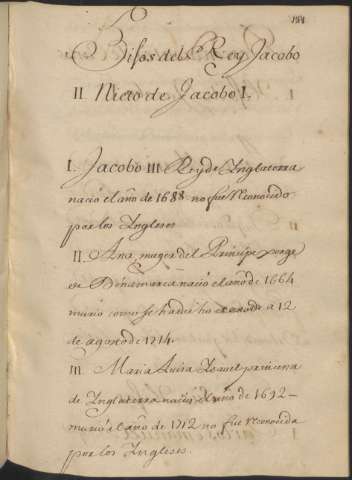 Hijos del Rey Jacobo
II Nieto de Jacobo I.
I. Jacobo III Rey de Inglaterra
nació el año de 1688 no fue reconocido
por los Ingleses
II. Ana muger del Principe Jorge
de Dinamarca nació el año de 1664
murio como se ha dicho a 12
de agosto de 1714.
III. Maria Luisa princesa
de Inglaterra nació el año de 1692
murió el año de 1712 no fue reconocida
por los Ingleses.